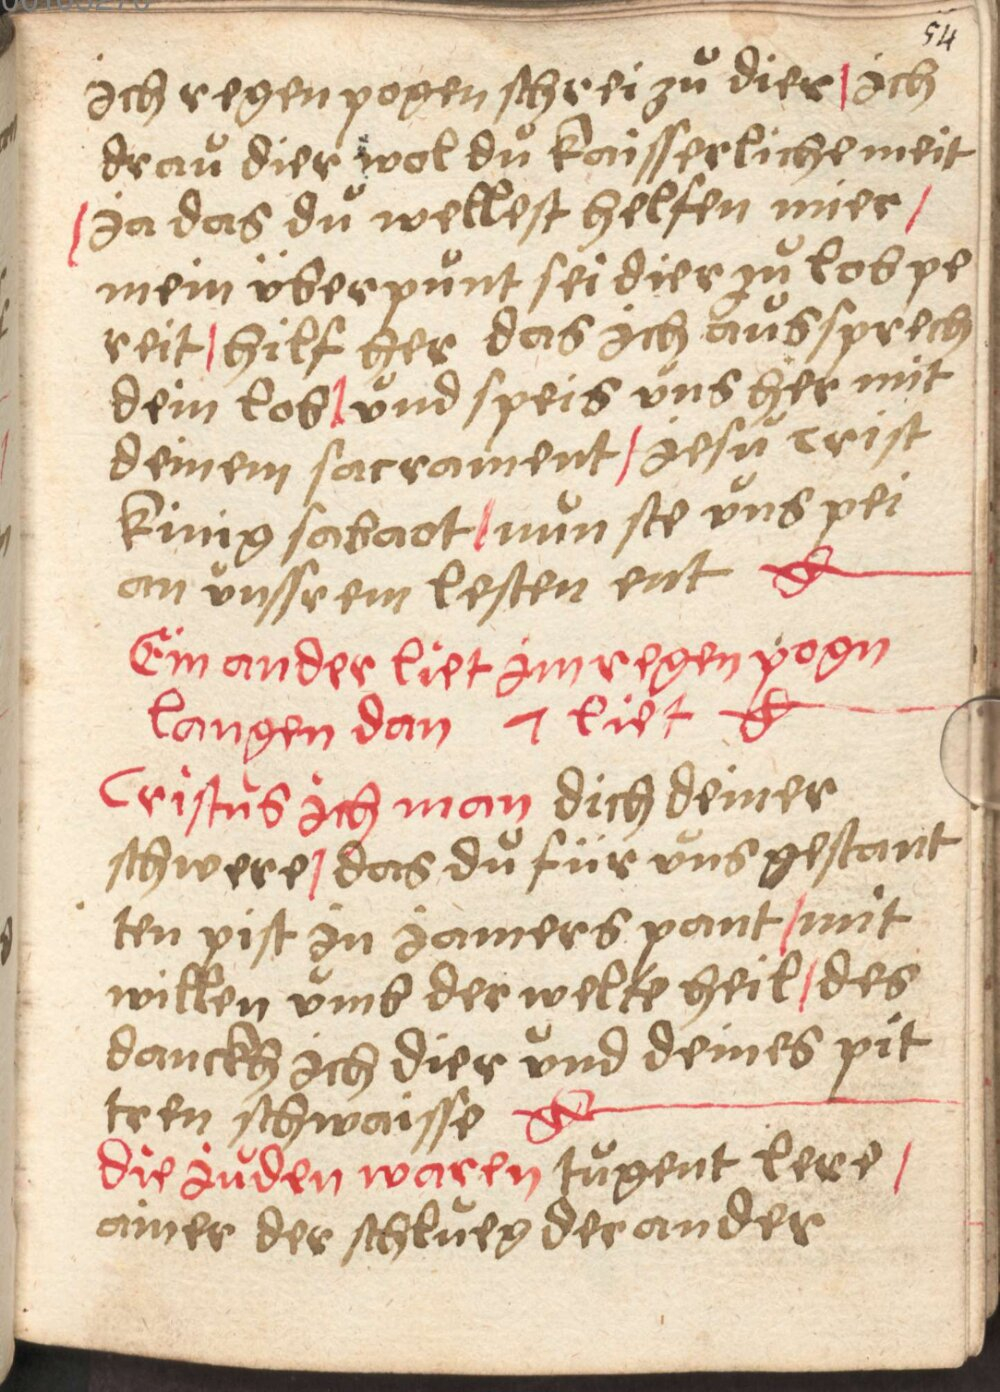 54
ich regenpogen schrei zů dier / ich
drau dier wol du kaisserliche meit
/ ia das du wellest helfen mier /
mein überpunt sei dier zů lob pe
reit / hilf her das ich aussprech
dein lob / und speis uns her mit
deinem sacrament / iesu crist
kinig sabaot / nun ste uns pei
an unssrem lesten ent
Ein ander liet im regenpogn
langen dan 7 liet
Cristus ich man dich deiner
schwere / das du für uns gestant
ten pist in iamers pant / mit
willen umb der welte heil / des
danckh ich dier und deines pit
tren schwaisse
die iuden waren tugent lere /
ainer der schlueg der ander